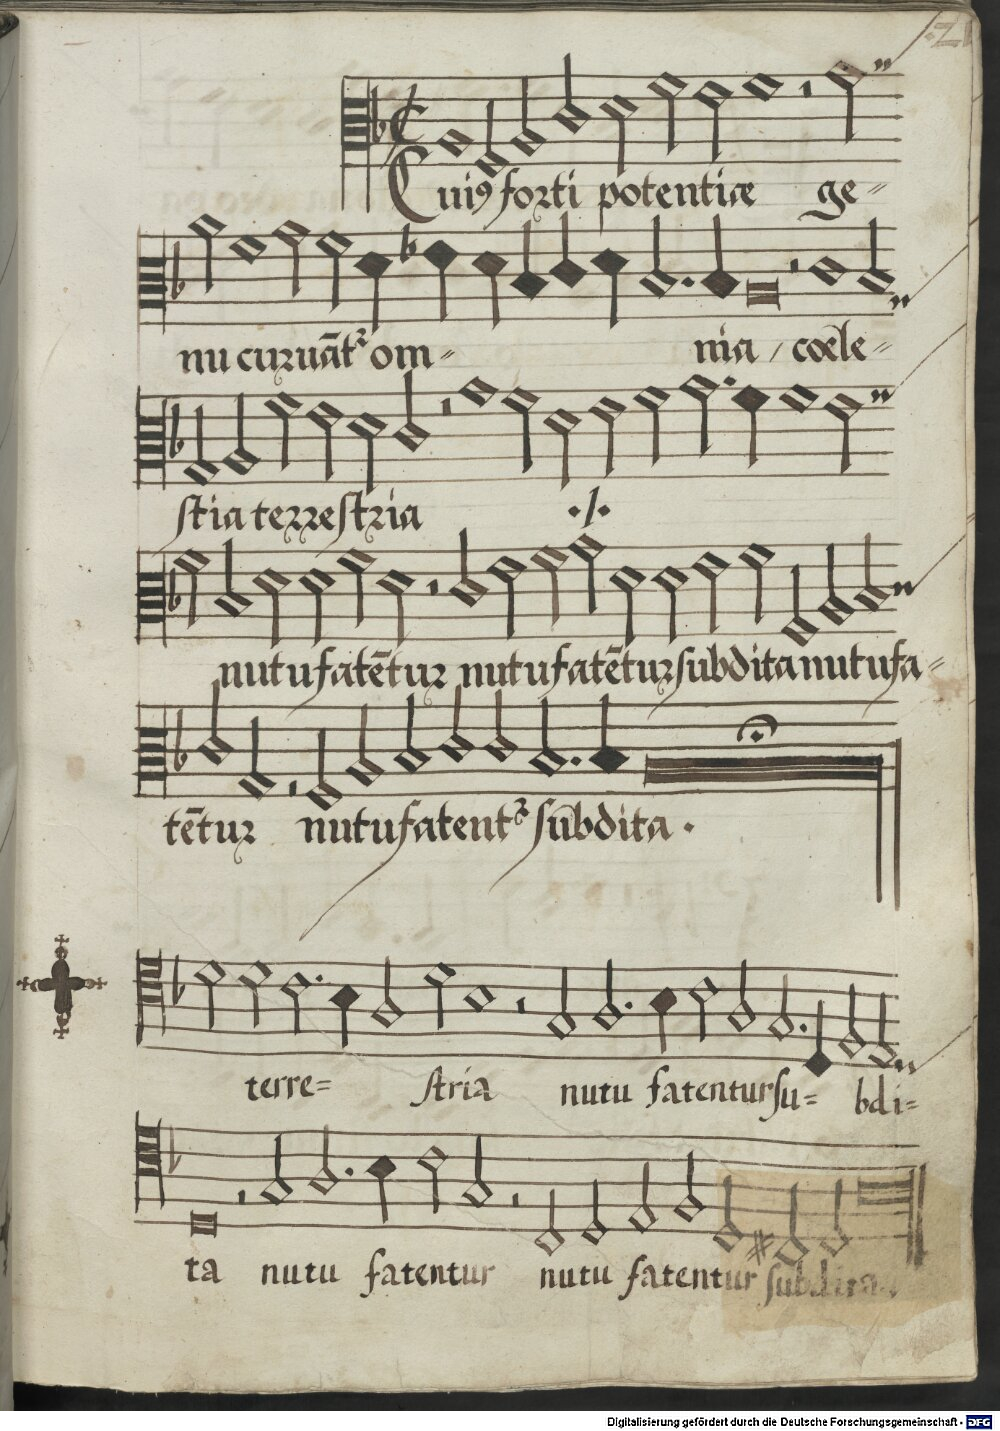 .2
Cui⁹ forti potentiæ ge=
nu curuātᷣ om= nia / cœle=
stia terrestria ·/·
nutu fatētur nutu fatētur subdita nutu fa=
tētur nutu fatentᷣ subdita .
terre= stria nutu fatentur su= bdi=
ta nutu fatentur nutu fatentur subdita.
Digitalisierung gefördert durch die Deutsche Forschungsgemeinschaft - DFG